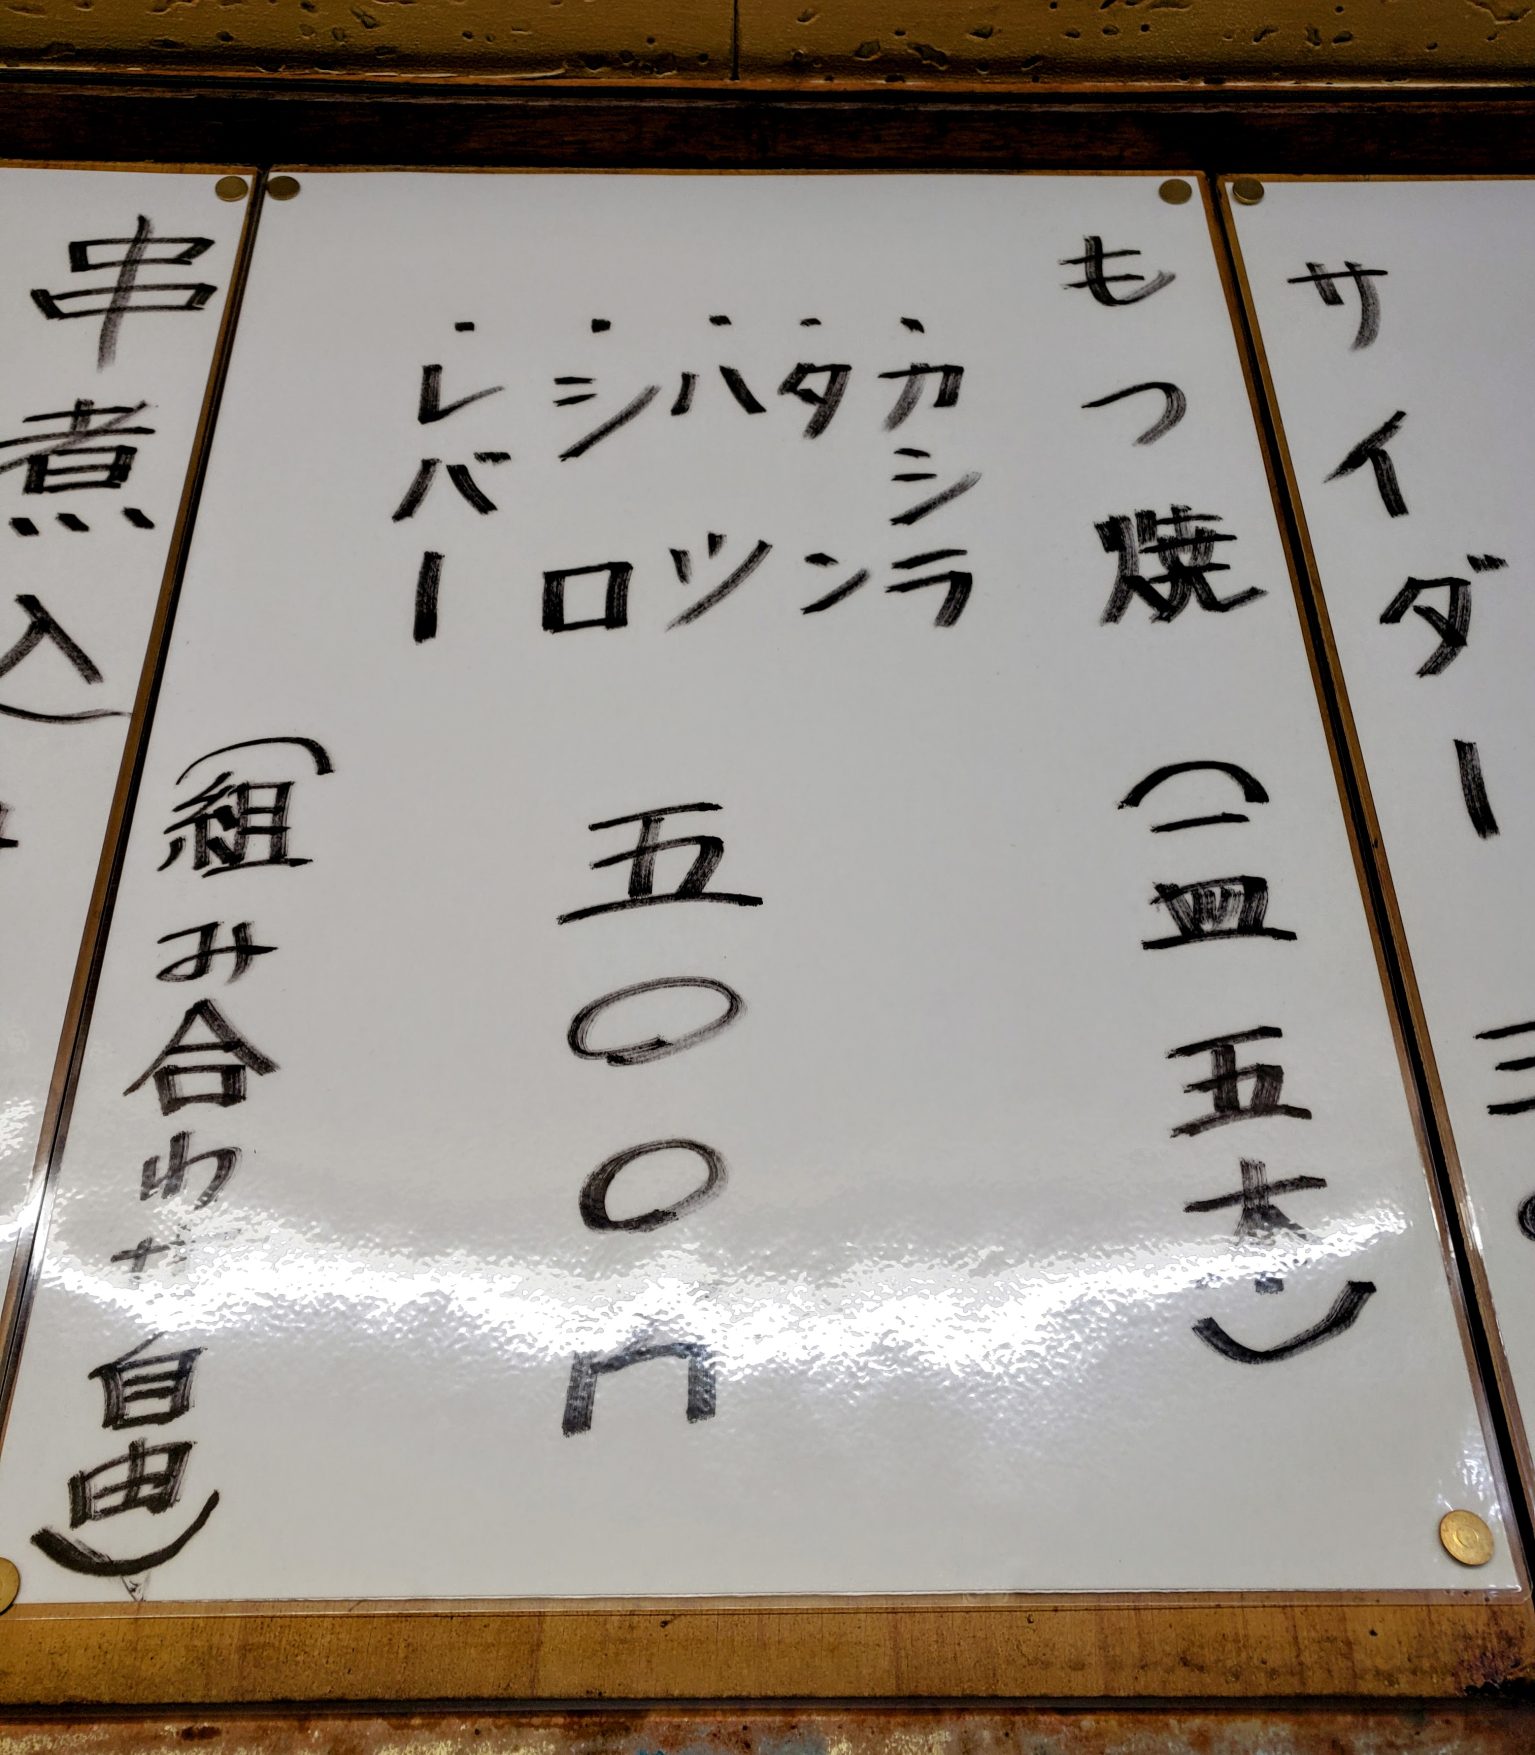 サイダー 三〇
もつ焼 (一皿 五本)
・カシラ
・タン
・ハツ
・シロ
・レバー
五〇〇円
(組み合わせ自由)
串煮込